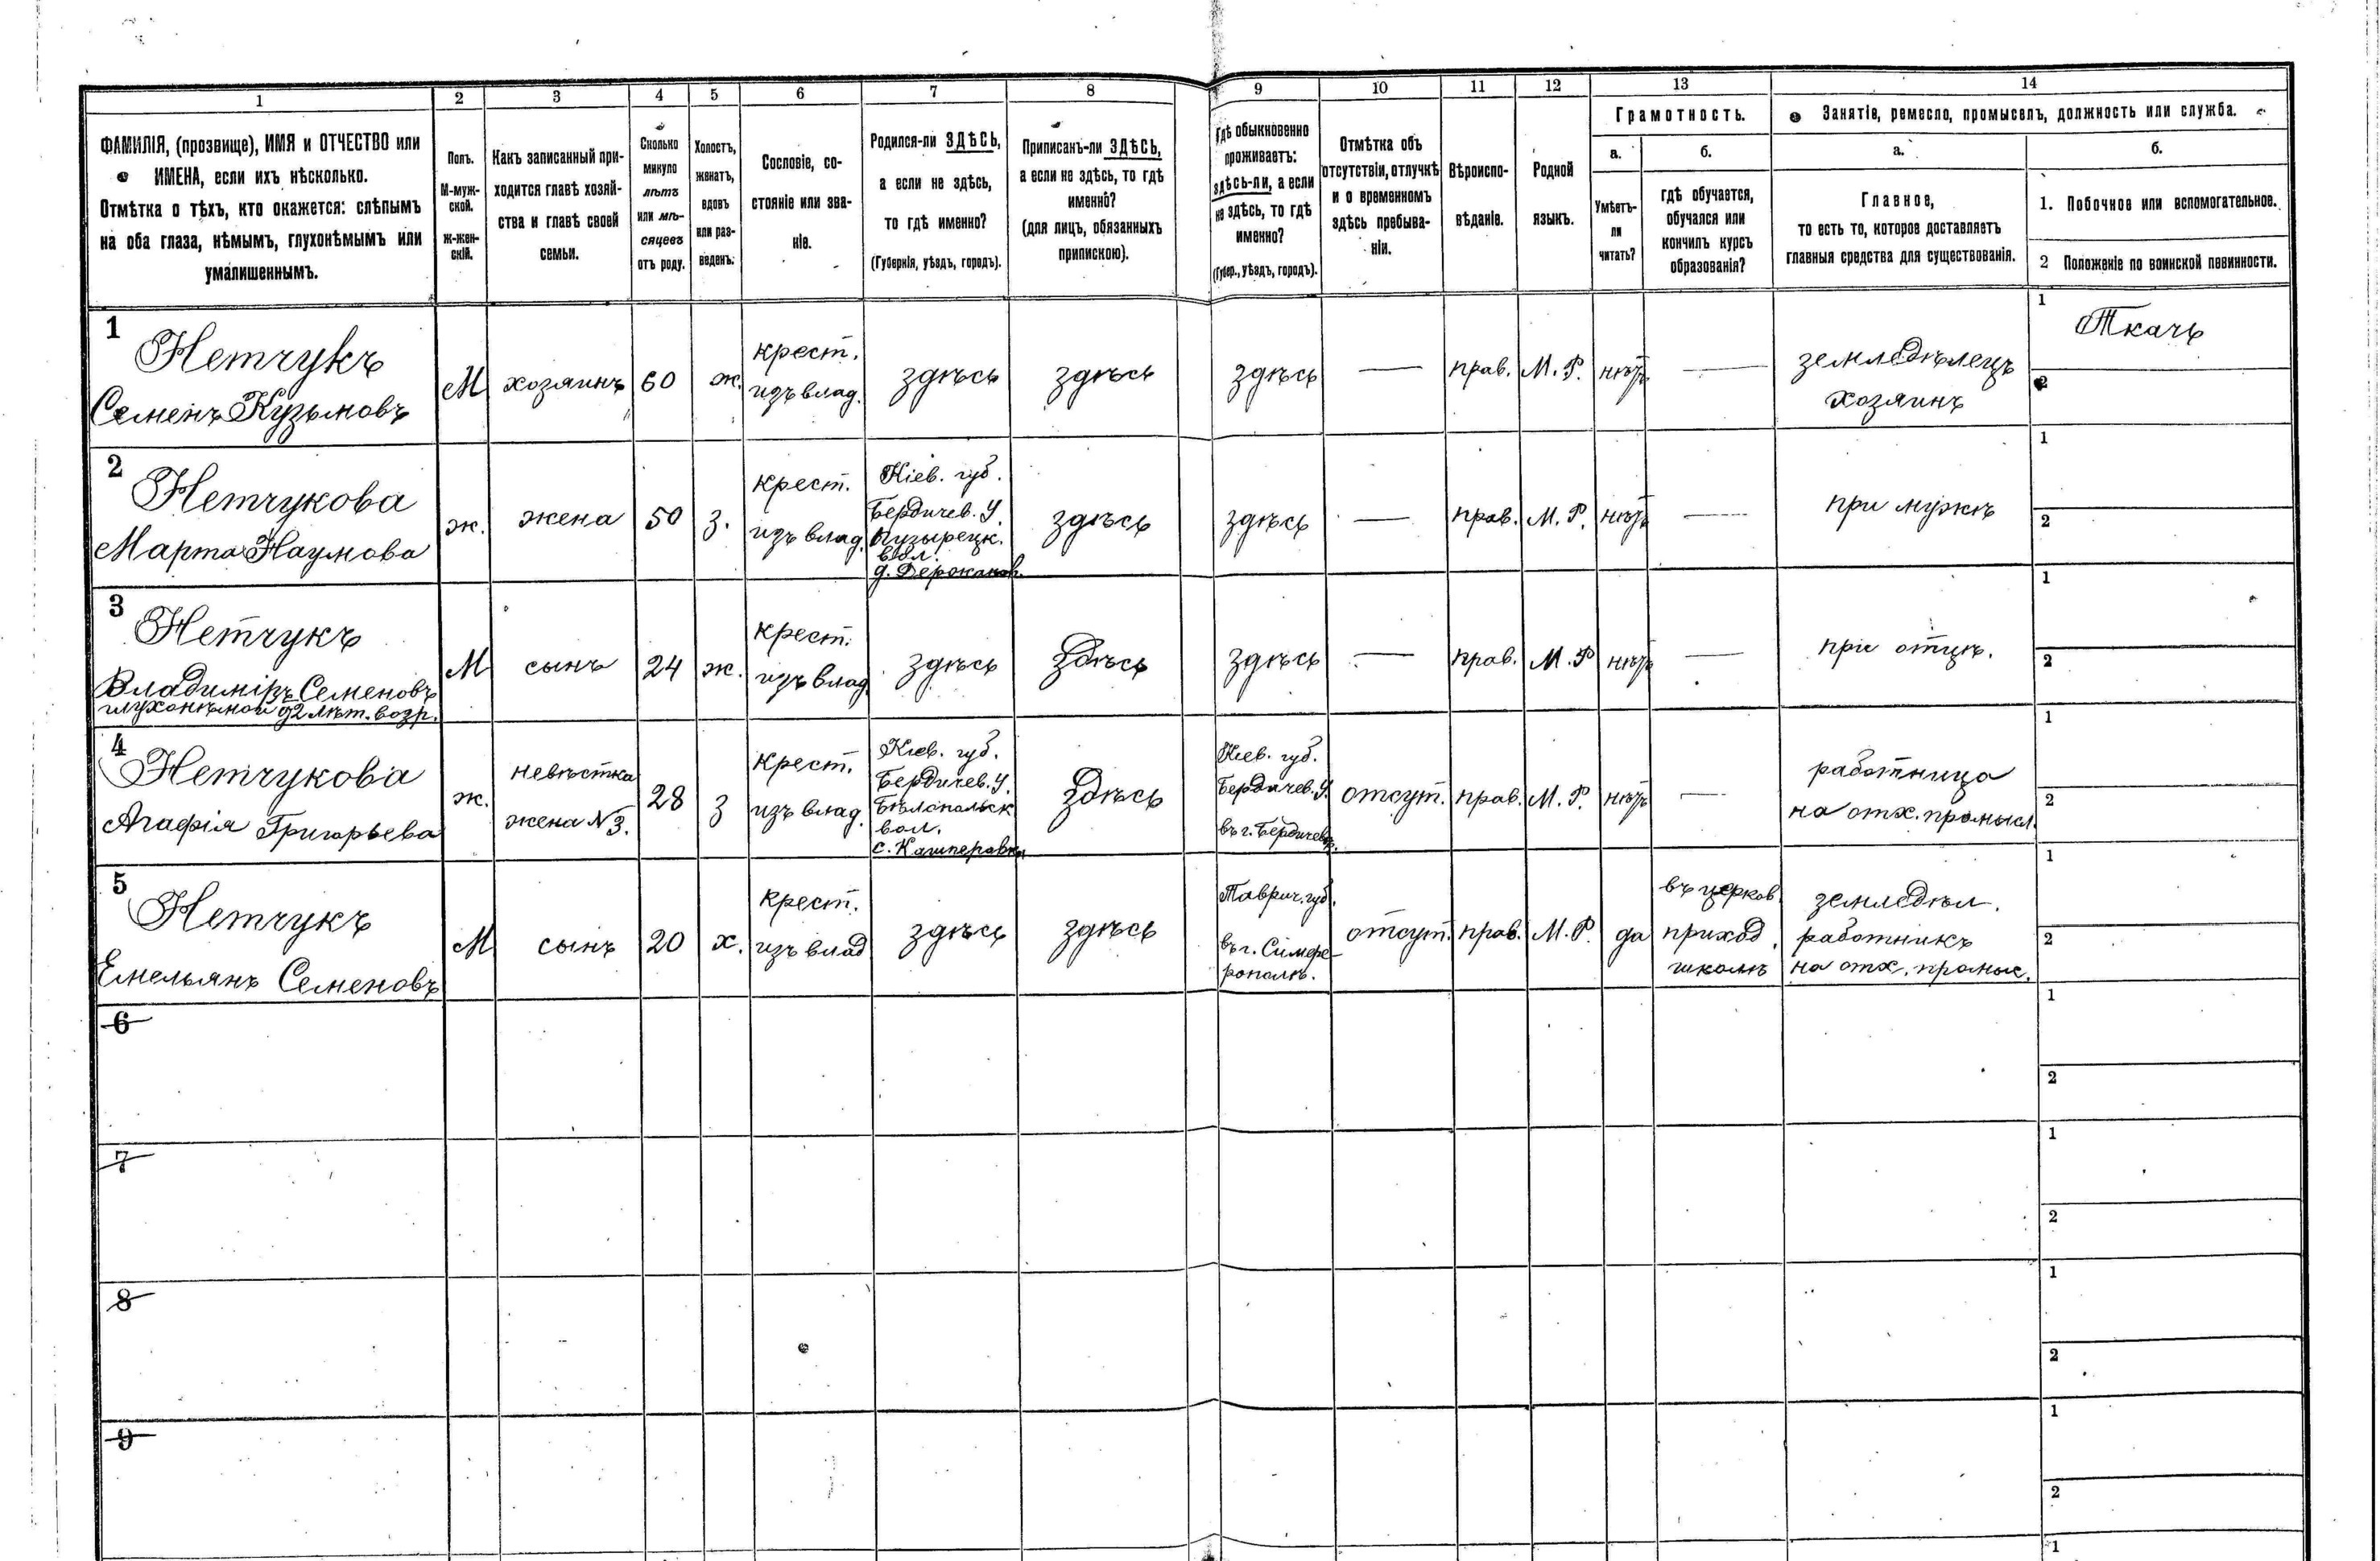 1 2 3 4 5 6 7 8 9 10 11 12 13 14
ФАМИЛІЯ, (прозвище), ИМЯ и ОТЧЕСТВО или
ИМЕНА, если ихъ нѣсколько.
Отмѣтка о тѣхъ, кто окажется: слѣпымъ
на оба глаза, нѣмымъ, глухонѣмымъ или
умалишеннымъ.
Полъ.
М-муж-
ской.
Ж-жен-
скій.
Какъ записанный при-
ходится главѣ хозяй-
ства и главѣ своей
семьи.
Сколько
минуло
лѣтъ
или мѣ-
сяцевъ
отъ роду.
Холостъ,
женатъ,
вдовъ
или раз-
веденъ.
Сословіе, со-
стояніе или зва-
ніе.
Родился-ли ЗДѢСЬ,
а если не здѣсь,
то гдѣ именно?
(Губернія, уѣздъ, городъ).
Приписанъ-ли ЗДѢСЬ,
а если не здѣсь, то гдѣ
именно?
(для лицъ, обязанныхъ
припискою).
Гдѣ обыкновенно
проживаетъ:
здѣсь-ли, а если
не здѣсь, то гдѣ
именно?
(Губер., уѣздъ, городъ).
Отмѣтка объ
отсутствіи, отлучкѣ
и о временномъ
здѣсь пребыва-
ніи.
Вѣроиспо-
вѣданіе.
Родной
языкъ.
Грамотность.
а.
Умѣетъ-
ли
читать?
б.
гдѣ обучается,
обучался или
кончилъ курсъ
образованія?
Занятіе, ремесло, промыселъ, должность или служба.
а.
Главное,
то есть то, которое доставляетъ
главныя средства для существованія.
б.
1. Побочное или вспомогательное.
2 Положеніе по воинской повинности.
1
Нетчукъ
Семенъ Кузьмовъ
М
хозяинъ
60
ж.
крест.
изъ влад.
здѣсь
здѣсь
здѣсь
—
прав.
М. Р.
нѣтъ
—
земледѣлецъ
хозяинъ
1
Ткачъ
2
2
Нетчукова
Марта Наумова
ж.
жена
50
з.
крест.
изъ влад.
Кіев. губ.
Бердичев. у.
Пузырецк.
вол.
здѣсь
здѣсь
—
прав.
М. Р.
нѣтъ
—
при мужѣ
1
2
3
Нетчукъ
Владиміръ Семеновъ
глухонѣмой
М
сынъ
24
ж.
крест.
изъ влад
здѣсь
здѣсь
здѣсь
—
прав.
М. Р
нѣтъ
—
при отцѣ.
1
2
4
Нетчукова
Агафія Григорьева
ж.
невѣстка
жена №3.
28
з
крест.
изъ влад.
Кіев. губ.
Бердичев. у.
Бѣлопольск
вол.
с. Кашперовка
здѣсь
Кіев. губ.
Бердичев. у.
въ г. Бердичевѣ.
отсут.
прав.
М. Р.
нѣтъ
—
работница
на отх. промысл.
1
2
5
Нетчукъ
Емельянъ Семеновъ
М
сынъ
20
х.
крест.
изъ влад
здѣсь
здѣсь
Таврич. губ.
въ г. Симфе-
рополѣ.
отсут.
прав.
М. Р.
да
въ церков
приход.
школѣ
земледѣл.
работникъ
на отх. промыс.
1
2
6
1
2
7
1
2
8
1
2
9
1
2
1